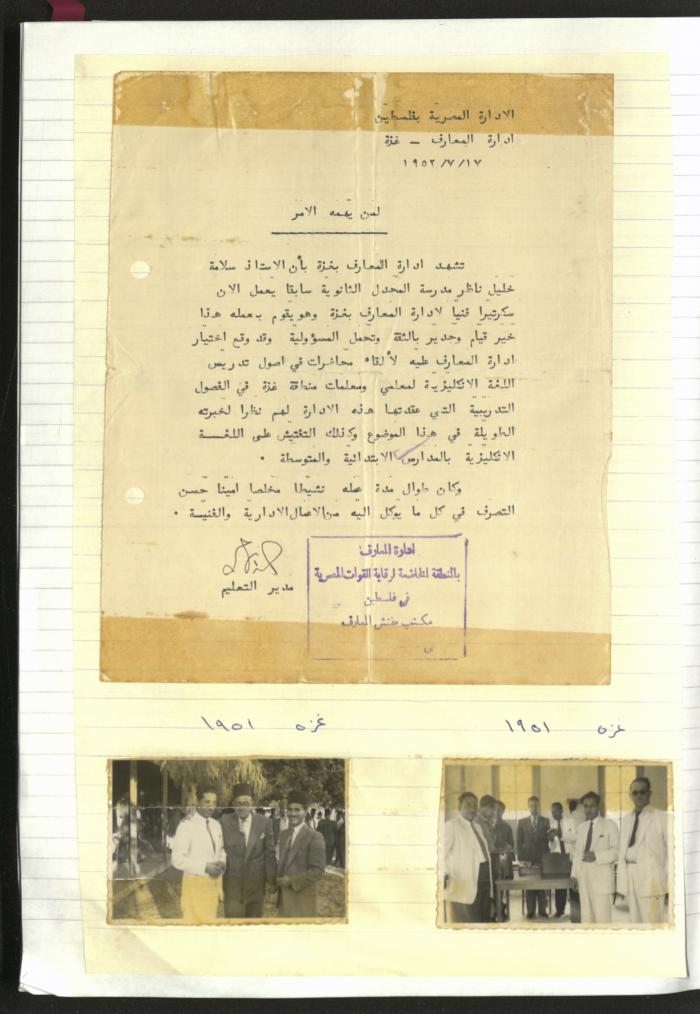 الادارة المصرية بفلسطين
ادارة المعارف — غزة
١٩٥٢/٧/١٧
لمن يهمه الامر
تشهد ادارة المعارف بغزة بأن الاستاذ سلامة
خليل ناظر مدرسة المجدل الثانوية سابقا يعمل الان
سكرتيرا فنيا لادارة المعارف بغزة وهو يقوم بعمله هذا
خير قيام وجدير بالثقة وتحمل المسؤولية وقد وقع اختيار
ادارة المعارف عليه لألقاء محاضرات في اصول تدريس
اللغة الانكليزية لمعلمي ومعلمات منطقة غزة في الفصول
التدريبية التي عقدتها هذه الادارة لهم نظرا لخبرته
الطويلة في هذا الموضوع وكذلك التفتيش على اللغة
الانكليزية بالمدارس الابتدائية والمتوسطة .
وكان طوال مدة عمله نشيطا مخلصا امينا حسن
التصرف في كل ما يوكل اليه من الاعمال الادارية والفنية .
مدير التعليم
ادارة المعارف
بالمنطقة الخاضعة لرقابة القوات المصرية
في فلسطين
مكتب مفتش المعارف
غزه ١٩٥١
غزه ١٩٥١